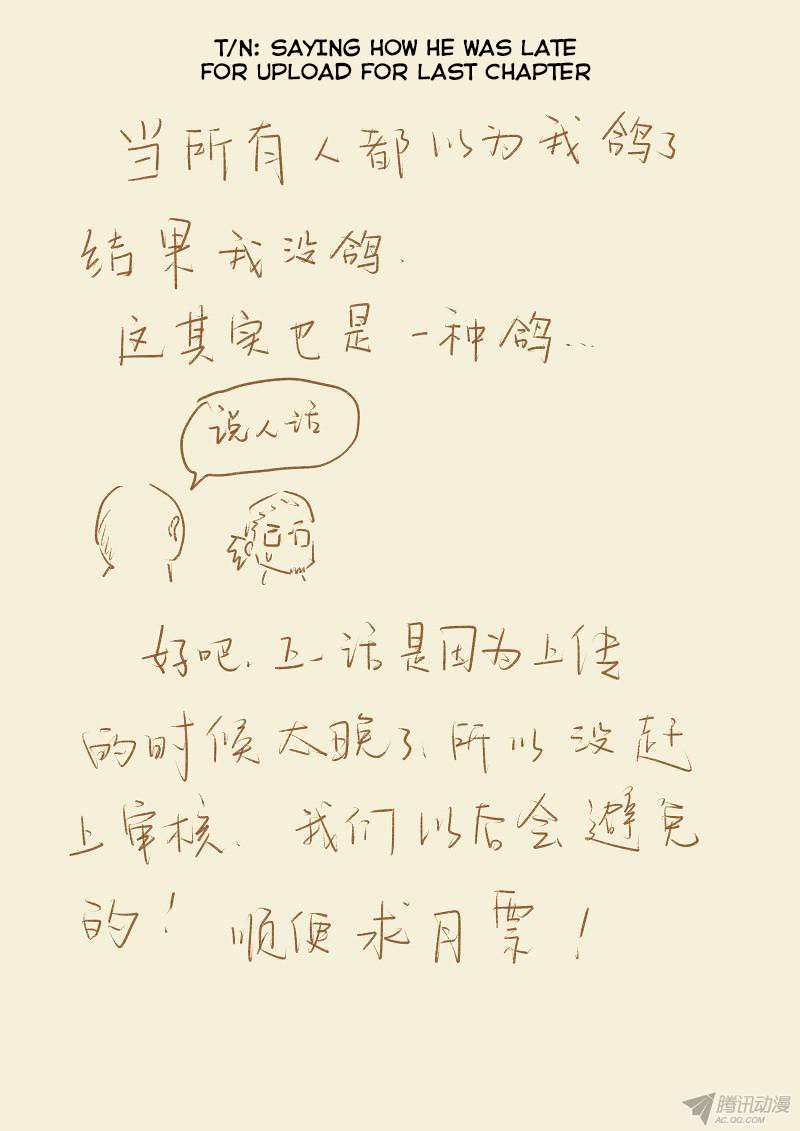 T/N: SAYING HOW HE WAS LATE
FOR UPLOAD FOR LAST CHAPTER
当所有人都以为我鸽了
结果我没鸽.
这其实也是一种鸽...
说人话
好吧.上一话是因为上传
的时候太晚了、所以没赶
上审核. 我们以后会避免
的! 顺便求月票!
腾讯动漫
AC.QQ.COM